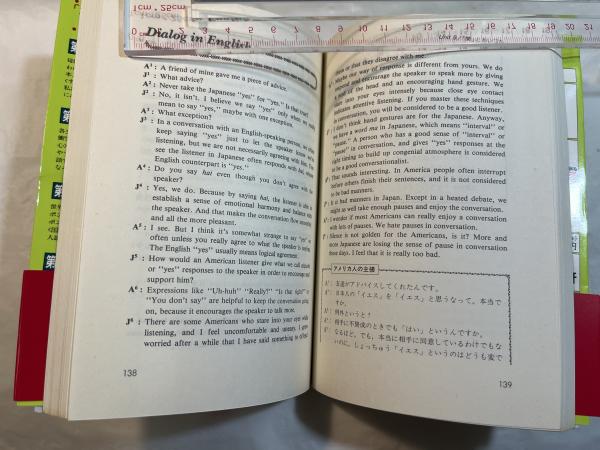 Dialog in English
A¹ : A friend of mine gave me a piece of advice.
J¹ : What advice?
A² : Never take the Japanese "yes" for "yes." Is that true?
J² : No, it isn't. I believe we say "yes" only when we really
mean to say "yes," maybe with one exception.
A³ : What exception?
J³ : In a conversation with an English-speaking person, we often
keep saying "yes" just to let the speaker know we're
listening, but we are not necessarily agreeing with him. You
see the listener in Japanese often responds with hai, whose
English counterpart is "yes."
A⁴ : Do you say hai even though you don't agree with the
speaker?
J⁴ : Yes, we do. Because by saying hai, the listener is able to
establish a sense of emotional harmony and balance with
the speaker. And that makes the conversation flow smoothly
and all the more pleasant.
A⁵ : I see. But I think it's somewhat strange to say "yes" so
often unless you really agree to what the speaker is saying.
The English "yes" usually means logical agreement.
J⁵ : How would an American listener give what we call nods
or "yes" responses to the speaker in order to encourage and
support him?
A⁶ : Expressions like "Uh-huh" "Really?" "Is that right" or
"You don't say" are helpful to keep the conversation going
on, because it encourages the speaker to talk more.
J⁶ : There are some Americans who stare into your eyes while
listening, and I feel uncomfortable and uneasy. I get
worried after a while that I have said something to offend
138
that they disagree with me.
Maybe our way of response is different from yours. We do
respond and encourage the speaker to speak more by giving
of the head and an encouraging hand gesture. We
into your eyes intensely because close eye contact
indicates attentive listening. If you master these techniques
in conversation, you will be considered to be a good listener.
I don't think hand gestures are for the Japanese. Anyway,
we have a word ma in Japanese, which means "interval" or
"pause." A person who has a good sense of "interval" or
"pause" in conversation, and gives "yes" responses at the
right timing to build up congenial atmosphere is considered
to be a good conversationalist.
That sounds interesting. In America people often interrupt
before others finish their sentences, and it is not considered
to be bad manners.
It is bad manners in Japan. Except in a heated debate, we
might as well take enough pauses and enjoy the conversation.
I wonder if most Americans can really enjoy a conversation
with lots of pauses. We hate pauses in conversation.
Silence is not golden for the Americans, is it? More and
more Japanese are losing the sense of pause in conversation
these days. I feel that it is really too bad.
アメリカ人の主張
A¹ : 友達がアドバイスしてくれたんです。
A² : 日本人の「イエス」を「イエス」と思うなって。本当で
すか。
A³ : 例外というと?
A⁴ : 相手に不賛成のときでも「はい」というんですか。
A⁵ : なるほど。でも、本当に相手に同意しているわけでもな
いのに、しょっちゅう「イエス」というのはどうも変で
139